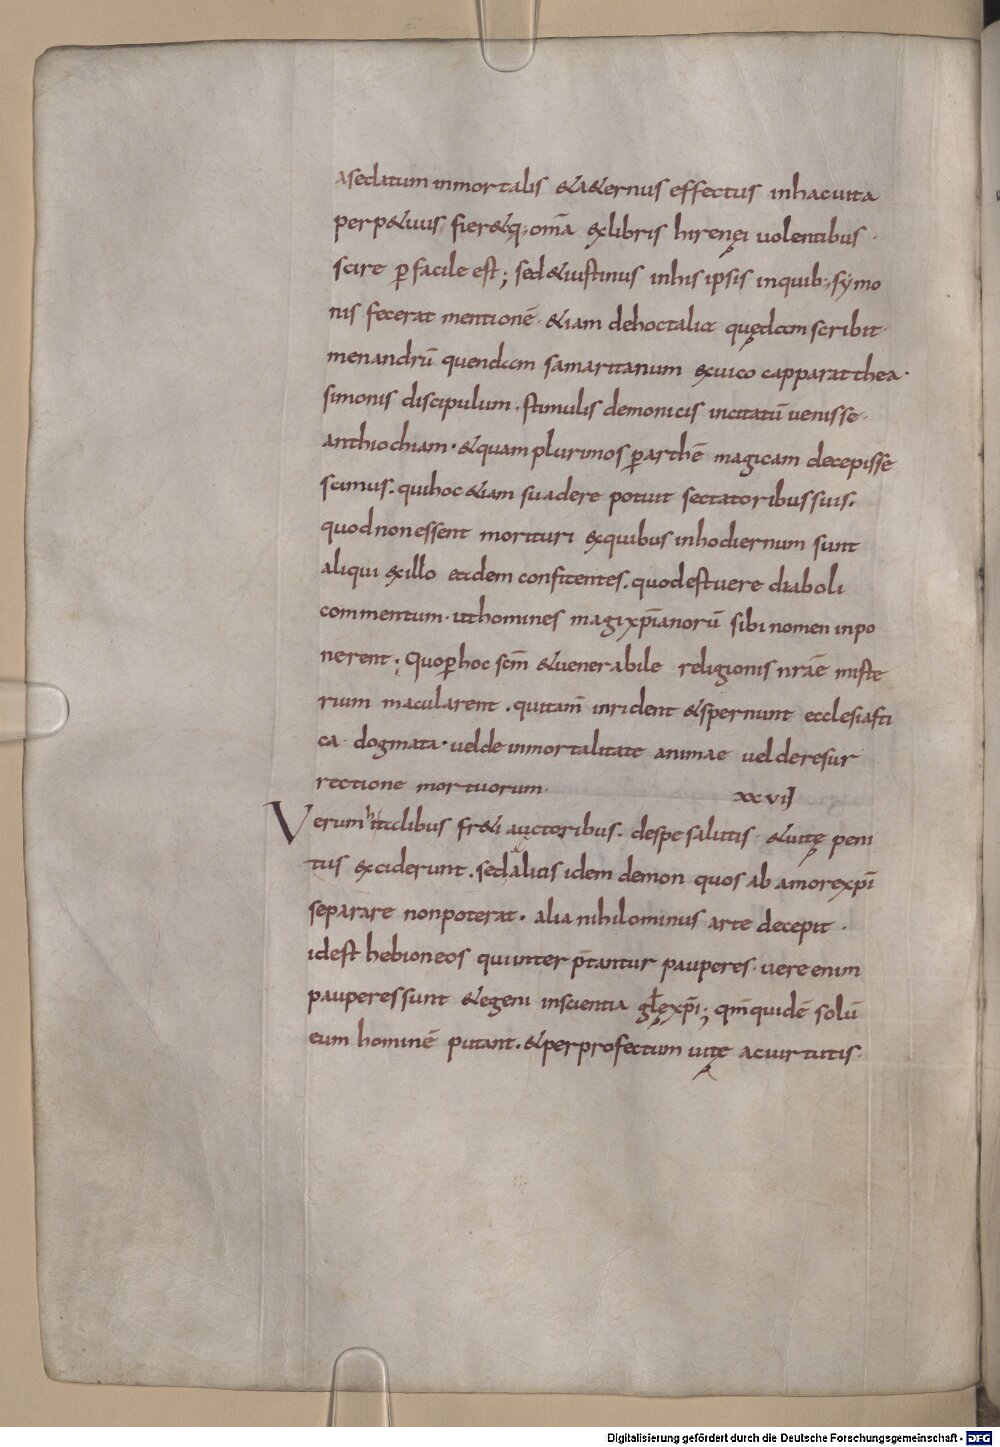 asedatum inmortalis &a&ernus effectus inhacuita
perp&uus fier&q;, om̄a exlibris hirenęi uolentibus ·
scire ꝑfacile est; sed&iustinus inhisipsis inquib;, sẏmo
nis fecerat mentionē · &iam dehoctalia quędam scribit ·
menandrū quendam samaritanum exuico capparatthea ·
simonis discipulum . stimulis demonicis incitatū uenisse ·
anthiochiam · &quamplurimos ꝑarthē magicam decepisse
scimus . quihoc &iam suadere potuit sectatoribussuis .
quodnonessent morituri exquibus inhodiernum sunt
aliqui exillo eadem confitentes . quodestuere diaboli
commentum · uthomines magixp̄ianorū sibi nomen inpo
nerent ; Quoꝑhoc sc̄m &uenerabile religionis nr̄ae miste
rium macularent . quitam̄ inrident &spernunt ecclesiasti
ca dogmata · uelde inmortalitate animae uel deresur
rectione mortuorum ·
xxvij
Verum htalibus fr&i auctoribus . despe salutis · &uitę peni
tus exciderunt . sedalios idem demon quos ab amorexp̄i
separare nonpoterat · alia nihilominus arte decepit ·
idest hebioneos quiinterp̄tantur pauperes · uere enim
pauperessunt &egeni inscientia gl̄ęxp̄i ; qm̄quidē solū
eum hominē putant . &perprofectum uitę acuirtutis ·
Digitalisierung gefördert durch die Deutsche Forschungsgemeinschaft - DFG